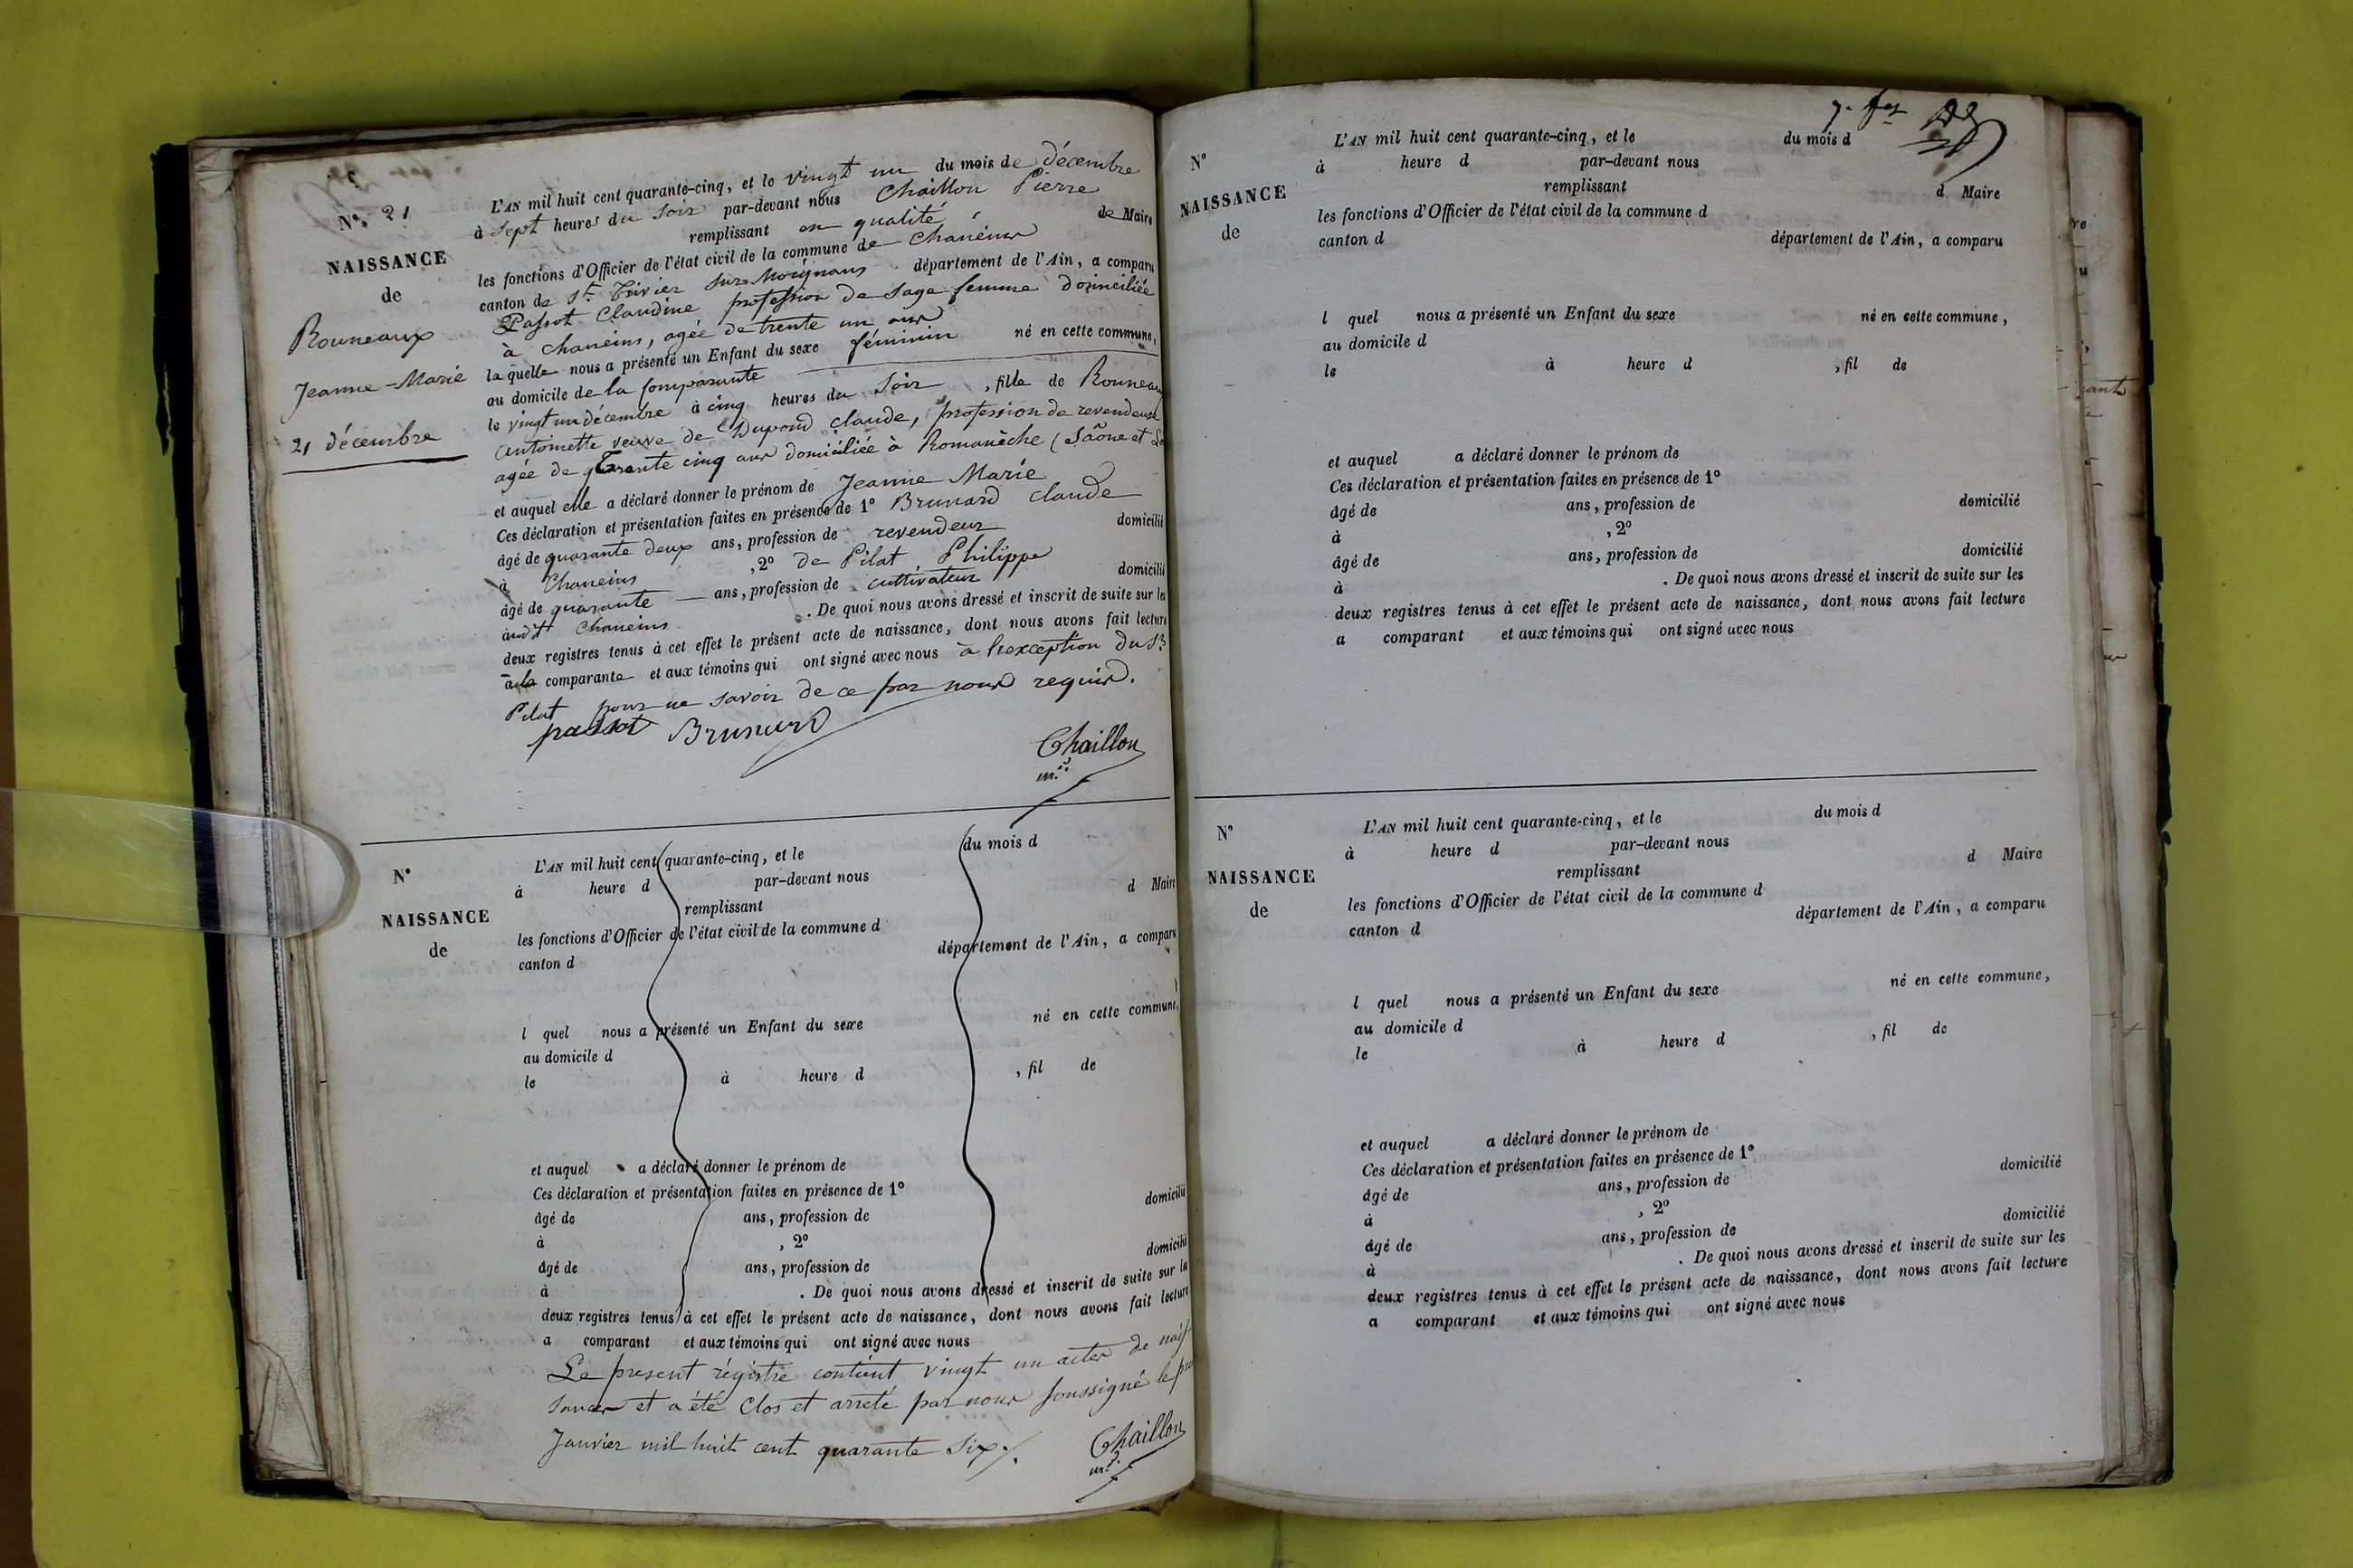 N° 21
NAISSANCE
de
Ronneaux
Jeanne-Marie
21 décembre
L'AN mil huit cent quarante-cinq, et le vingt un du mois de décembre
à sept heures du soir par-devant nous Chaillon Pierre
remplissant en qualité de Maire
les fonctions d'Officier de l'état civil de la commune de Chaneins
canton de St. Trivier sur Moignans département de l'Ain, a comparu
Passot Claudine profession de sage femme domiciliée
à Chaneins, agée de trente un ans
laquelle nous a présenté un Enfant du sexe féminin né en cette commune,
au domicile de la comparante
le vingt un décembre à cinq heures du soir, fille de Ronneaux
antoinette veuve de Dupond Claude, profession de revendeuse
agée de trente cinq ans domiciliée à Romanèche (Saône et
et auquel elle a déclaré donner le prénom de Jeanne Marie
Ces déclaration et présentation faites en présence de 1° Brunard Claude
âgé de quarante deux ans, profession de revendeur domicilié
à Chaneins, 2° de Pilat Philippe
âgé de quarante ans, profession de cultivateur domicilié
audt Chaneins. De quoi nous avons dressé et inscrit de suite sur les
deux registres tenus à cet effet le présent acte de naissance, dont nous avons fait lecture
à la comparante et aux témoins qui ont signé avec nous à l'exception du Sr
Pilat pour ne savoir de ce par nous requis.
passot Brunard
Chaillon
N°
NAISSANCE
de
L'AN mil huit cent quarante-cinq, et le du mois d
à heure d par-devant nous
remplissant d Maire
les fonctions d'Officier de l'état civil de la commune d
canton d département de l'Ain, a comparu
l quel nous a présenté un Enfant du sexe né en cette commune,
au domicile d
le à heure d , fil de
et auquel a déclaré donner le prénom de
Ces déclaration et présentation faites en présence de 1°
âgé de ans, profession de domicilié
à , 2°
âgé de ans, profession de domicilié
à . De quoi nous avons dressé et inscrit de suite sur les
deux registres tenus à cet effet le présent acte de naissance, dont nous avons fait lecture
a comparant et aux témoins qui ont signé avec nous
Le present régistre contient vingt un actes de nais
sances et a été clos et arreté par nous soussigné le
Janvier mil huit cent quarante six.
Chaillon
N°
NAISSANCE
de
L'AN mil huit cent quarante-cinq, et le du mois d
à heure d par-devant nous
remplissant d Maire
les fonctions d'Officier de l'état civil de la commune d
canton d département de l'Ain, a comparu
l quel nous a présenté un Enfant du sexe né en cette commune,
au domicile d
le à heure d , fil de
et auquel a déclaré donner le prénom de
Ces déclaration et présentation faites en présence de 1°
âgé de ans, profession de domicilié
à , 2°
âgé de ans, profession de domicilié
à . De quoi nous avons dressé et inscrit de suite sur les
deux registres tenus à cet effet le présent acte de naissance, dont nous avons fait lecture
a comparant et aux témoins qui ont signé avec nous
N°
NAISSANCE
de
L'AN mil huit cent quarante-cinq, et le du mois d
à heure d par-devant nous
remplissant d Maire
les fonctions d'Officier de l'état civil de la commune d
canton d département de l'Ain, a comparu
l quel nous a présenté un Enfant du sexe né en cette commune,
au domicile d
le à heure d , fil de
et auquel a déclaré donner le prénom de
Ces déclaration et présentation faites en présence de 1°
âgé de ans, profession de domicilié
à , 2°
âgé de ans, profession de domicilié
à . De quoi nous avons dressé et inscrit de suite sur les
deux registres tenus à cet effet le présent acte de naissance, dont nous avons fait lecture
a comparant et aux témoins qui ont signé avec nous